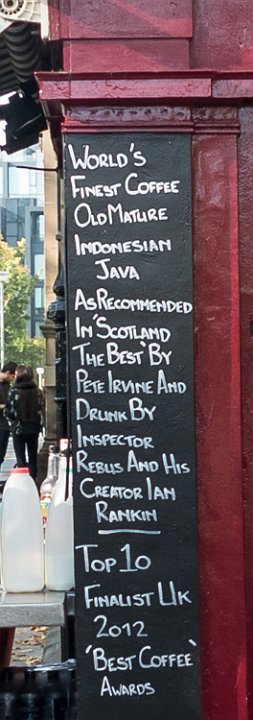 World's
Finest Coffee
Old Mature
Indonesian
Java
As Recommended
In "Scotland
The Best" By
Pete Irvine And
Drunk By
Inspector
Rebus And His
Creator Ian
Rankin
Top 10
Finalist Uk
2012
'Best Coffee'
Awards